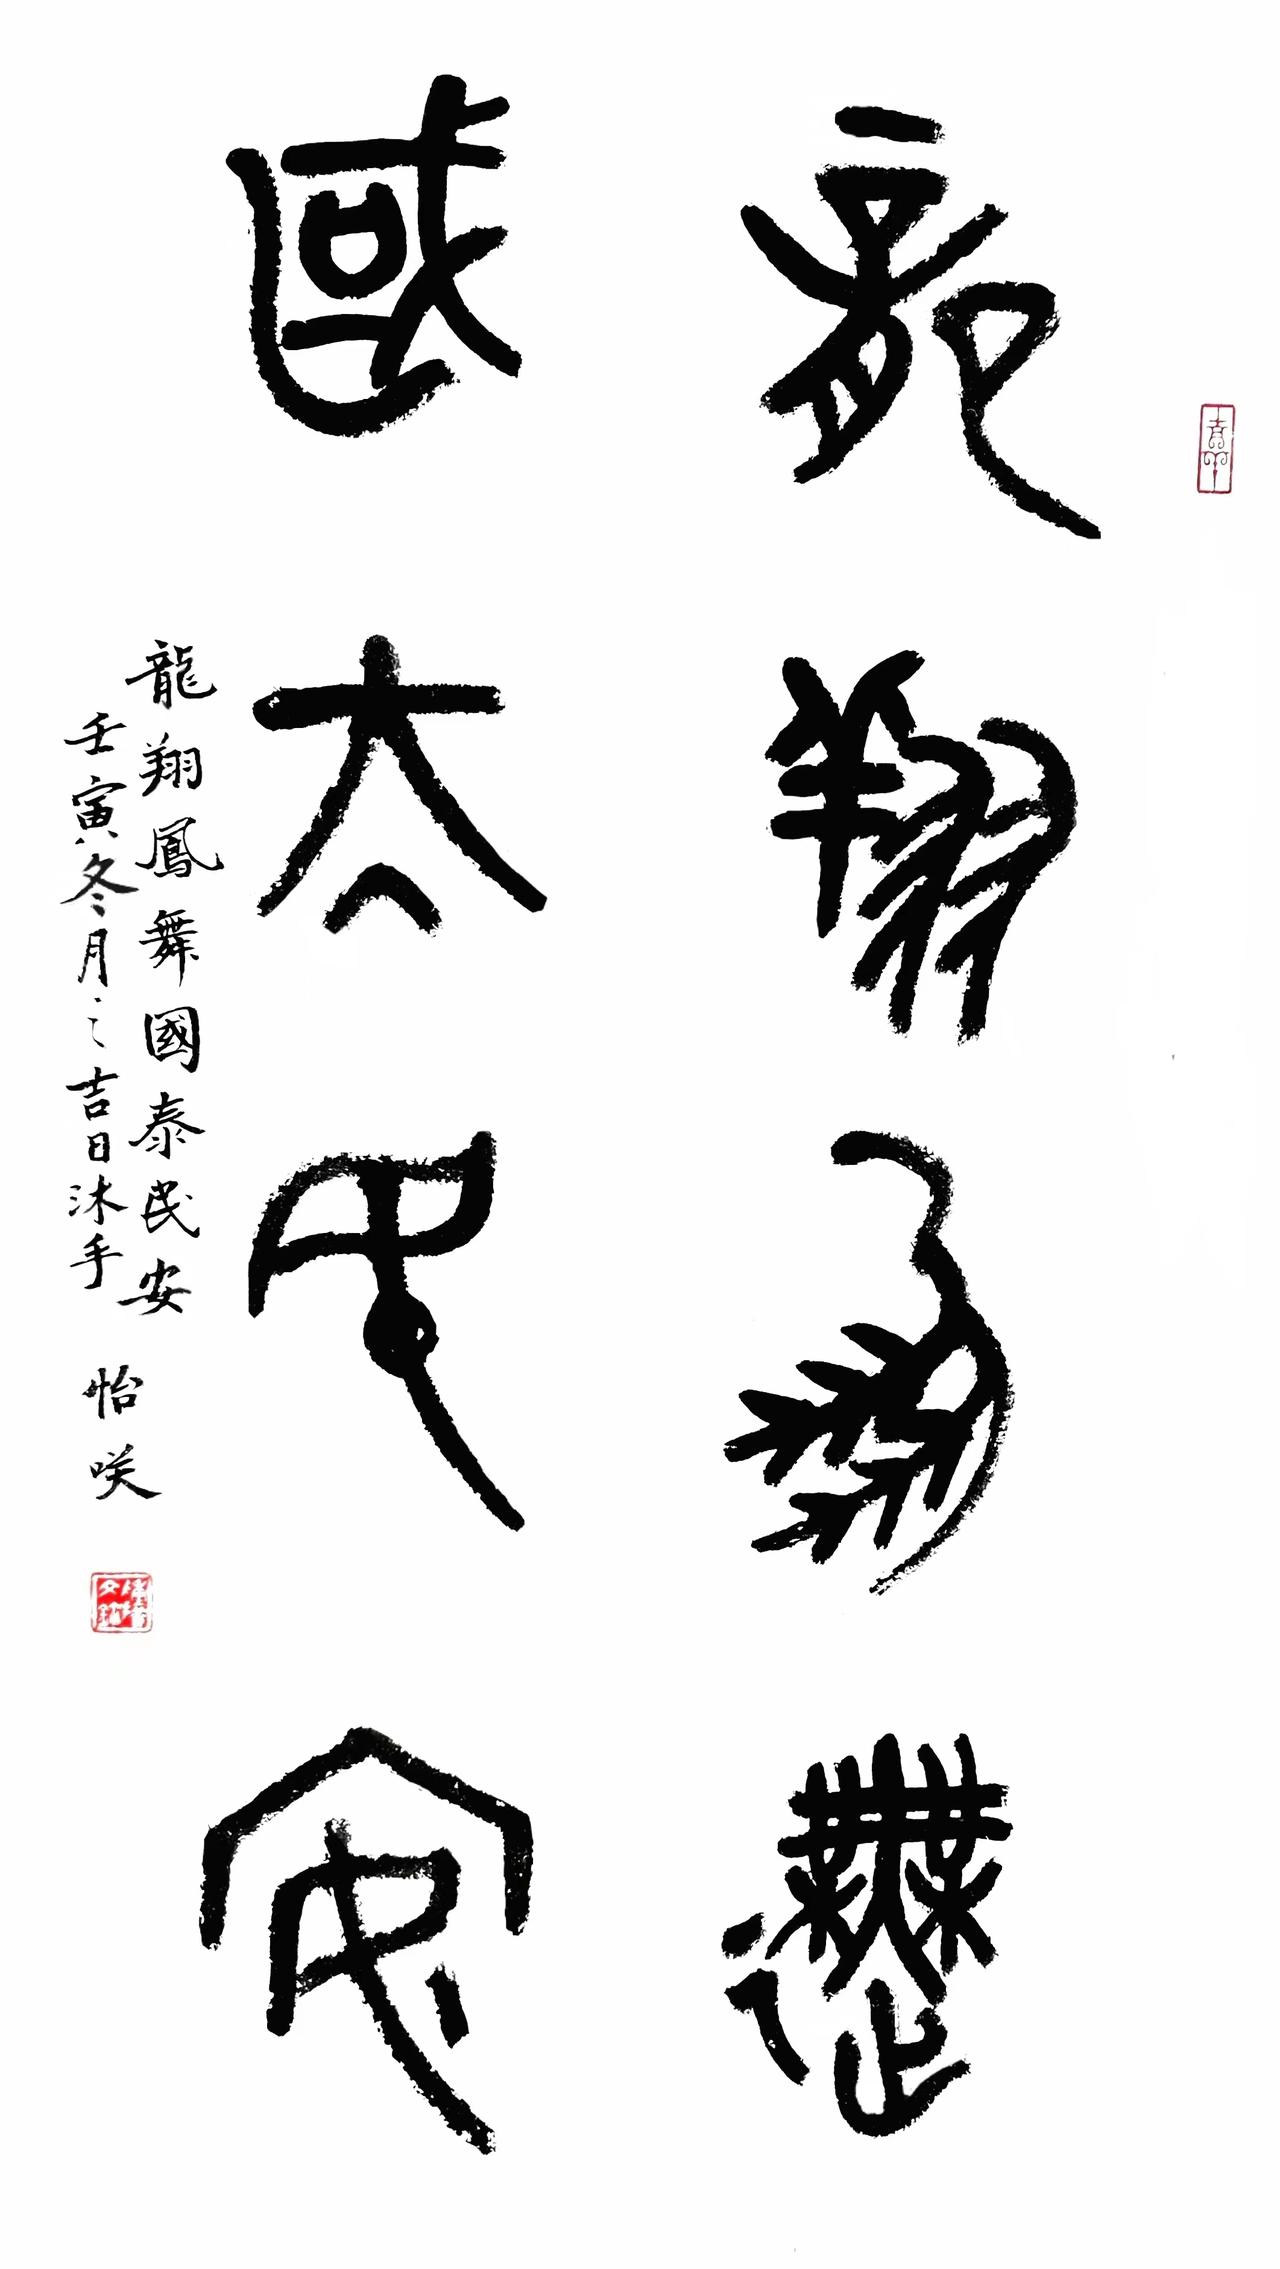 龍翔鳳舞
國太民安
龍翔鳳舞國泰民安
壬寅冬月之吉日沐手
怡咲